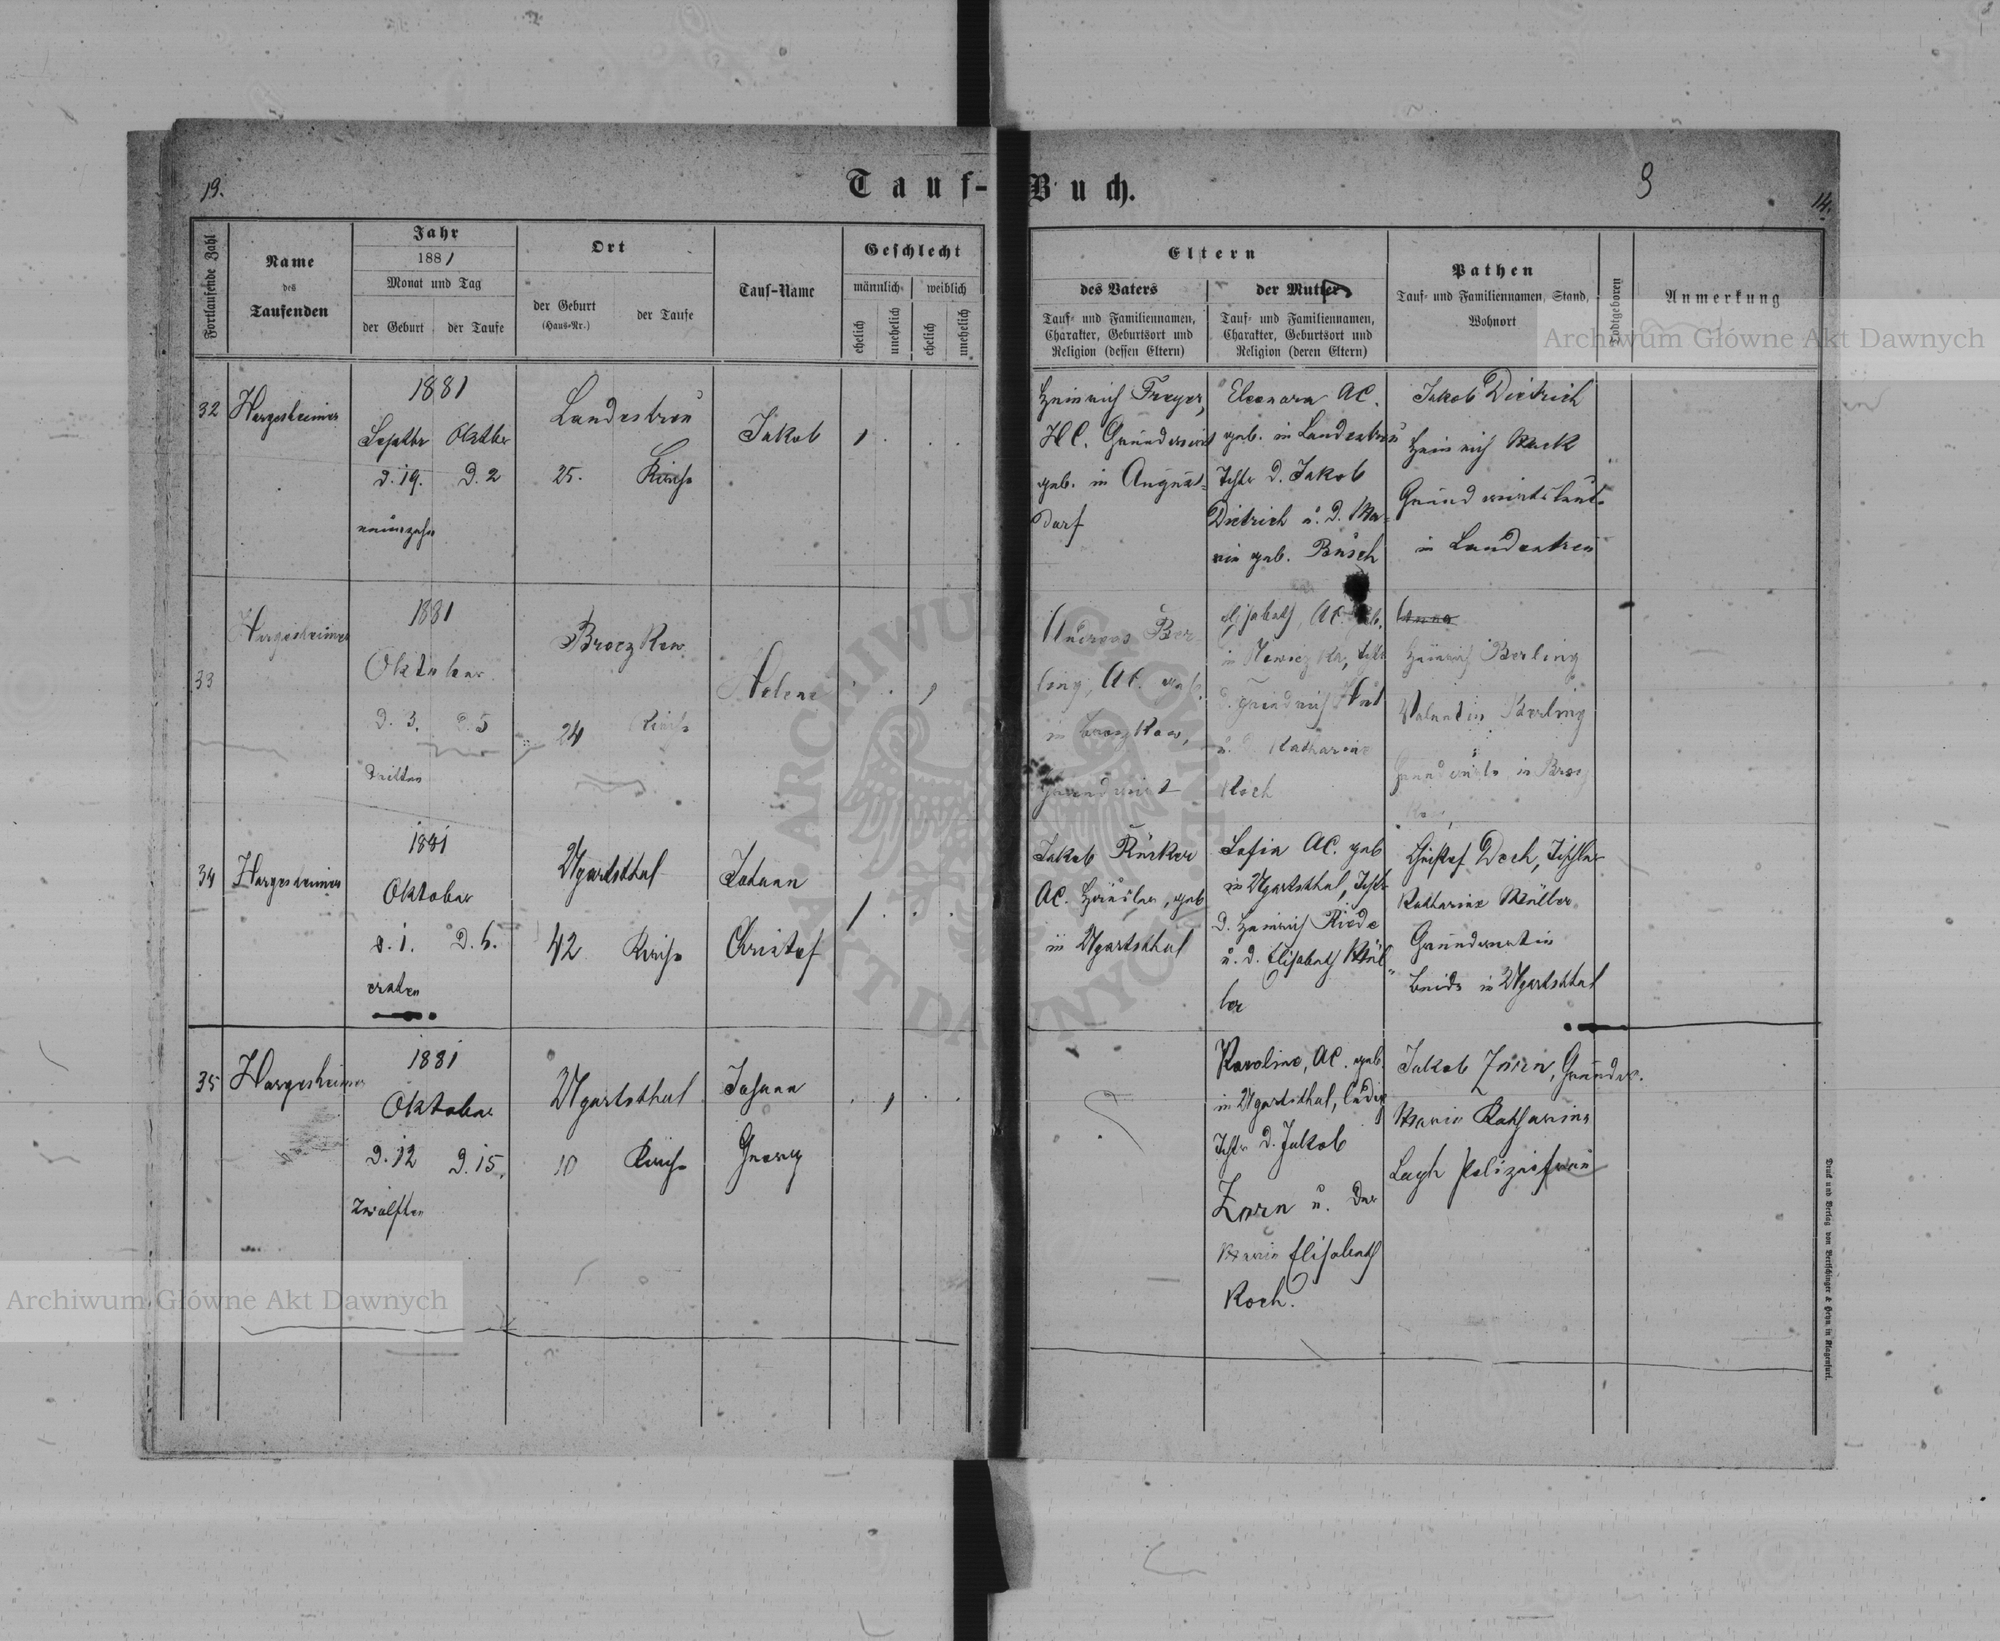 13.
Tauf-Buch.
9
14.
Fortlaufende Zahl
Name
des
Taufenden
Jahr
1881
Monat und Tag
der Geburt
der Taufe
Ort
der Geburt
(Haus-Nr.)
der Taufe
Tauf-Name
Geschlecht
männlich
weiblich
ehelich
unehelich
ehelich
unehelich
Eltern
des Vaters
Tauf- und Familiennamen,
Charakter, Geburtsort und
Religion (dessen Eltern)
der Mutter
Tauf- und Familiennamen,
Charakter, Geburtsort und
Religion (deren Eltern)
Pathen
Tauf- und Familiennamen, Stand,
Wohnort
Todtgeboren
Anmerkung
32
Hargesheimer
1881
Septbr Oktber
d. 19. d. 2
neunzehn
Landestreu
25. Kirche
Jakob
Heinrich Freyer,
HC. Grundwirt
geb. in August-
dorf
Eleonora AC.
geb. in Landestreu
Tchtr d. Jakob
Dietrich u. d. Ma-
rie geb. Busch
Jakob Dietrich
Heinrich Mack
Grundwirtsleute
in Landestreu
33
Hargesheimer
1881
Oktober
d. 3. d. 5
dritten
Broczkow
24 Kirche
Helene
Andreas Ber-
ling, AC. geb.
in Broczkow,
Grundwirt
Elisabeth, AC. geb.
in
d. Friedrich
u. Katharine
Koch
Anna
Heinrich Berling
Valentin Berling
Grundwirte in Brocz
kow,
34
Hargesheimer
1881
Oktober
d. 1. d. 6.
ersten
Ugartsthal
42 Kirche
Johann
Christof
Jakob Rücker
AC. Häusler, geb
in Ugartsthal
Sofia AC. geb
in Ugartsthal, Tchtr
d. Heinrich Riede
u. d. Elisabeth Mül-
ler
Christof Dech, Tischler
Katharine Müller
Grundwirtin
beide in Ugartsthal
35
Hargesheimer
1881
Oktober
d. 12 d. 15.
zwölften
Ugartsthal
10 Kirche
Johann
Georg
Karoline, AC. geb.
in Ugartsthal, ledig
Tchtr d. Jakob
Zorn u. der
Marie Elisabeth
Koch.
Jakob Zorn, Grundw.
Marie Katharine
Polizeifrau
Druck und Verlag von Bertschinger & Heyn in Klagenfurt.
Archiwum Główne Akt Dawnych
Archiwum Główne Akt Dawnych
ARCHIWUM GŁÓWNE AKT DAWNYCH